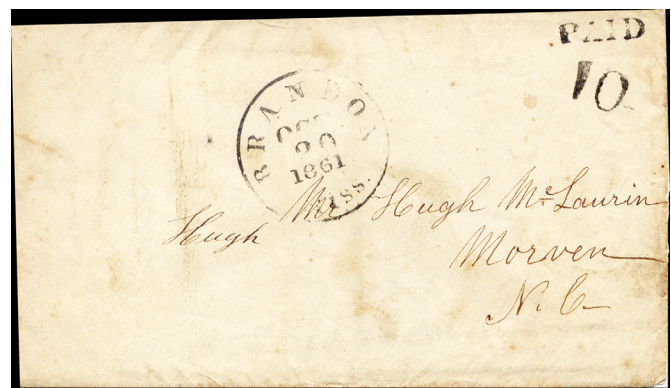 PAID
10
BRANDON
OCT
20
1861
Miss.
Mr Hugh McLaurin
Hugh
Morven
N. C